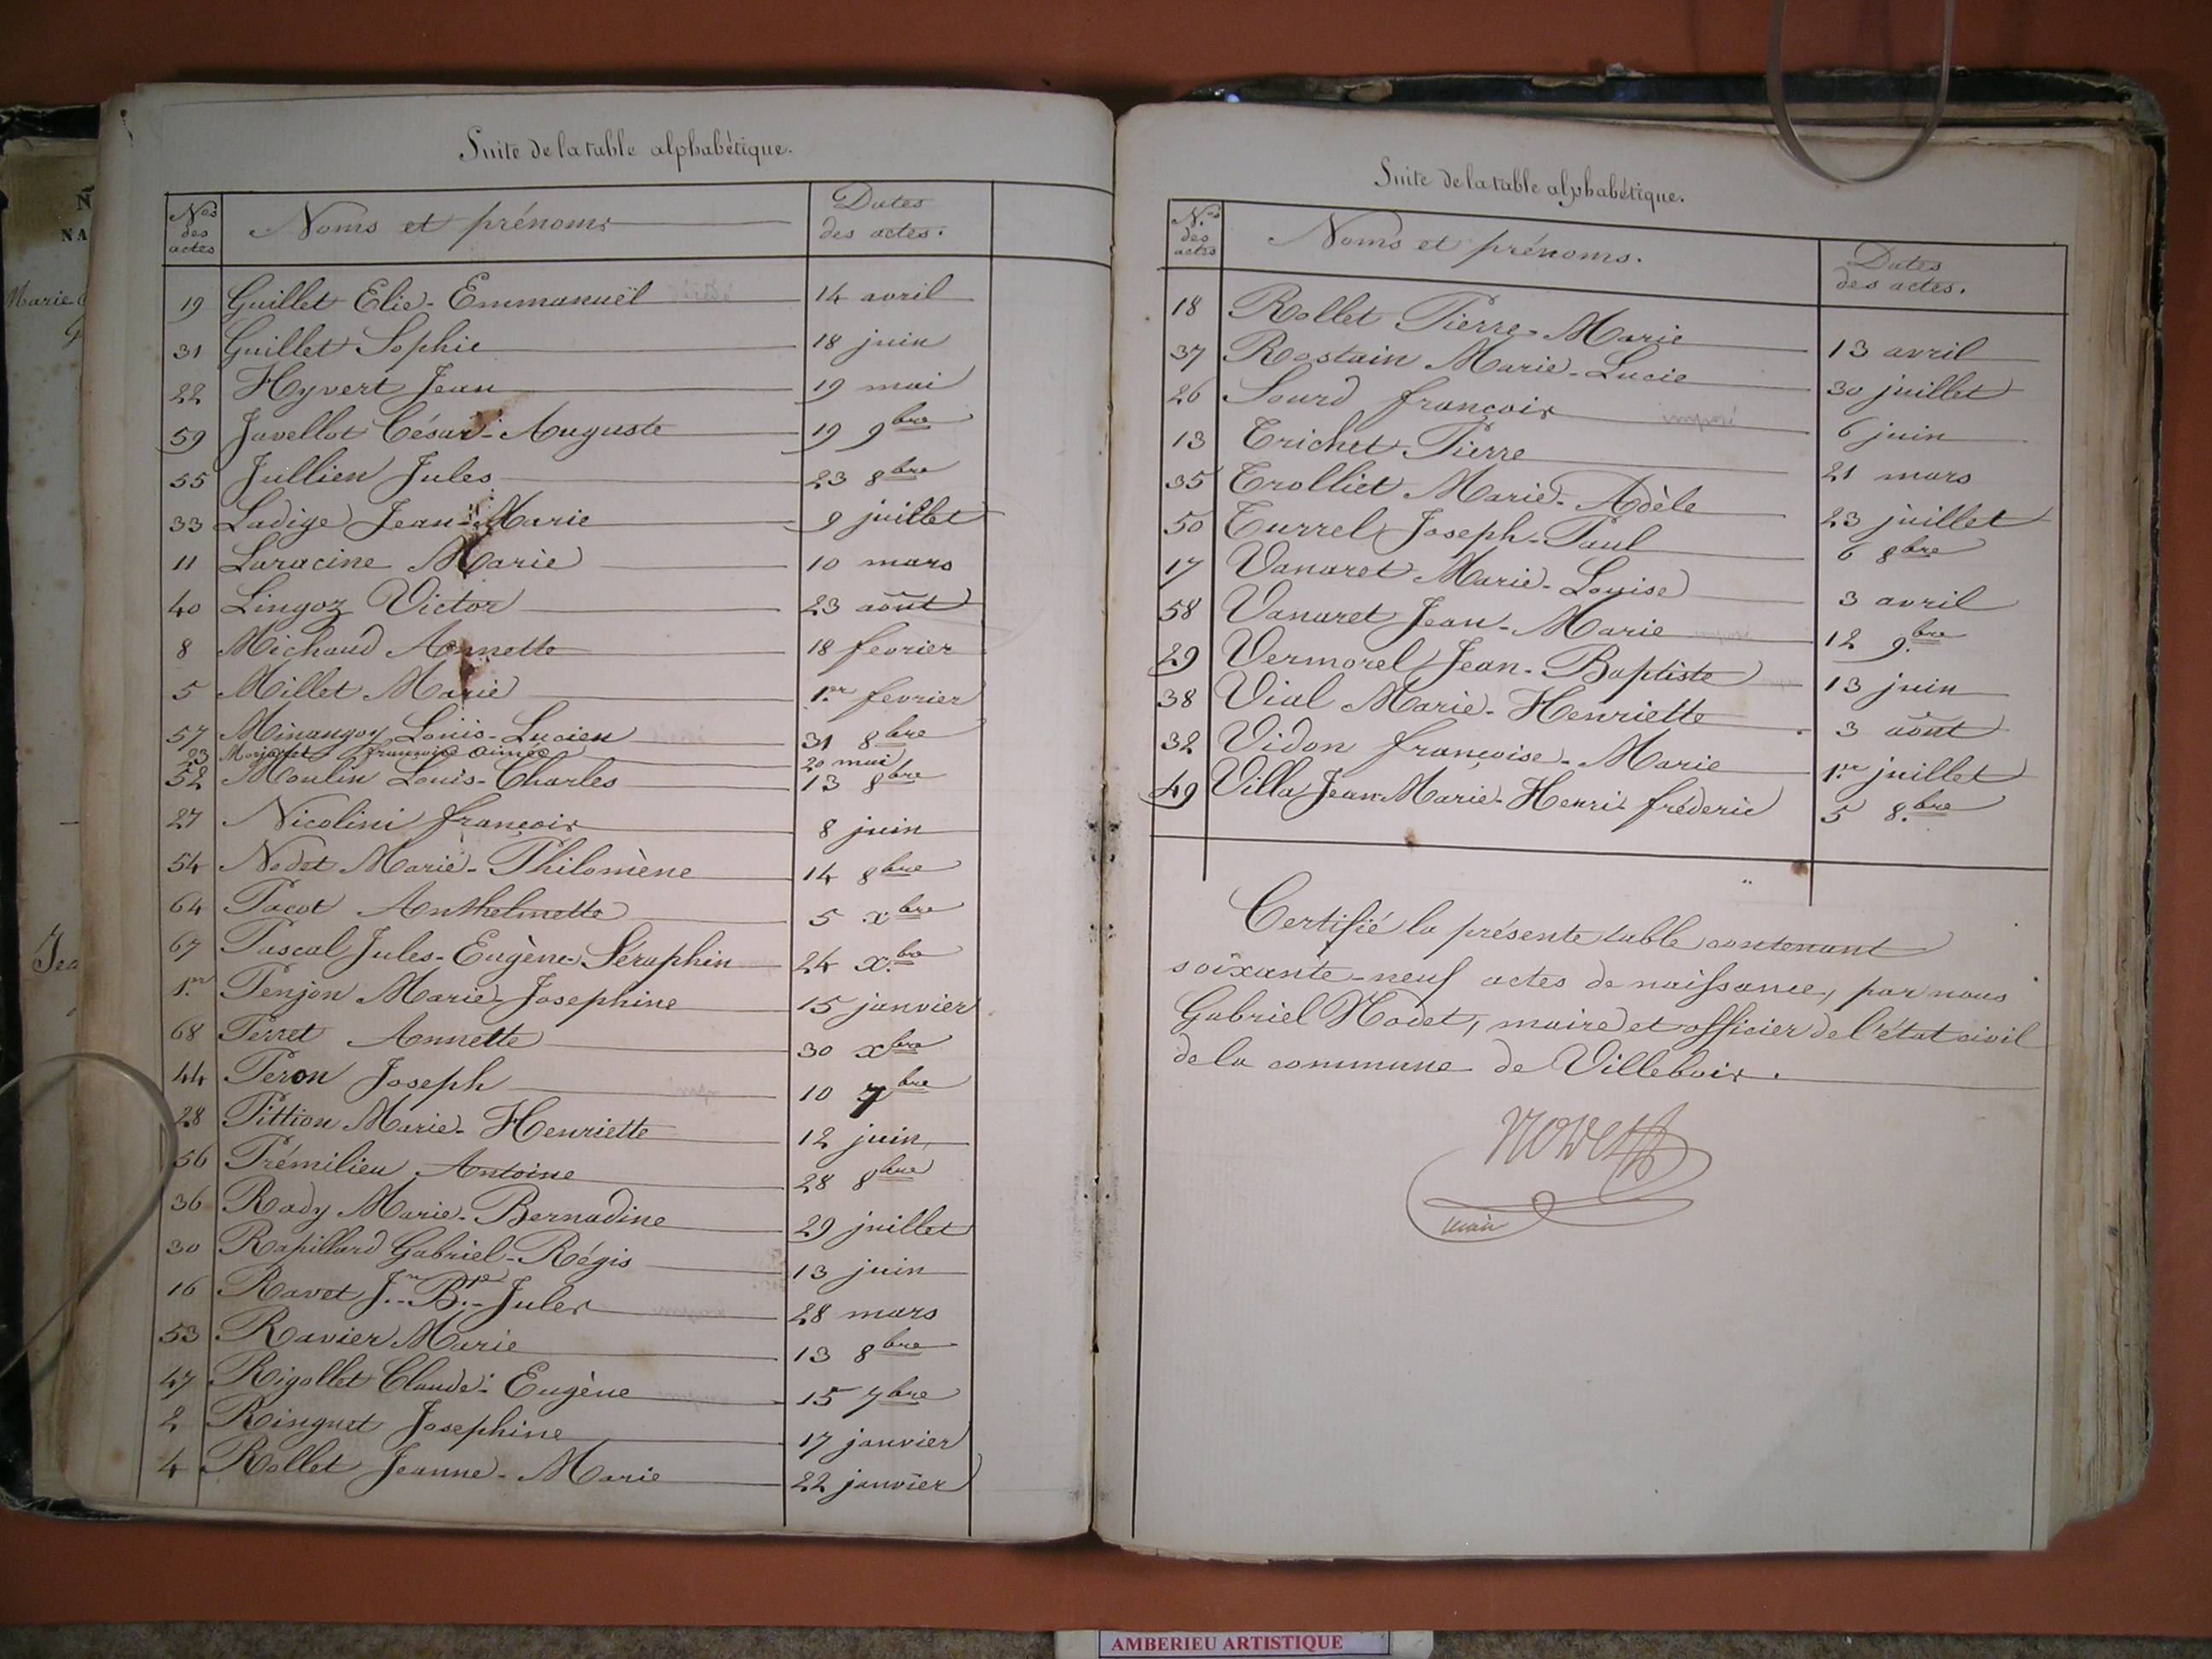 Suite de la table alphabètique.
Nos des actes Noms et prénoms Dates des actes.
19 Guillet Elie-Emmanuël 14 avril
31 Guillet Sophie 18 juin
22 Hyvert Jean 19 mai
59 Javellot César-Auguste 19 9bre
55 Jullien Jules 23 8bre
33 Ladige Jean-Marie 9 juillet
11 Laracine Marie 10 mars
40 Lingoz Victor 23 août
8 Michaud Annette 18 fevrier
5 Millet Marie 1.er fevrier
57 Minangoy Loüis-Lucien 31 8bre
23 françoise aimée 20 mai
52 Moulin Louis-Charles 13 8bre
27 Nicolini françois 8 juin
54 Nodet Marie-Philomène 14 8bre
64 Pacot Anthelmette 5 xbre
67 Pascal Jules-Eugène-Séraphin 24 x.bre
1.er Penjon Marie-Josephine 15 janvier
68 Perret Annette 30 xbre
44 Peron Joseph 10 7bre
28 Pittion Marie-Henriette 12 juin
56 Prémilieu Antoine 28 8bre
36 Rady Marie-Bernadine 29 juillet
30 Rapillard Gabriel-Régis 13 juin
16 Ravet J.n-B.te-Jules 28 mars
53 Ravier Marie 13 8bre
47 Rigollet Claude-Eugène 15 7bre
2 Ringuet Josephine 17 janvier
4 Rollet Jeanne-Marie 22 janvier
Suite de la table alphabétique.
N.os des actes Noms et prénoms. Dates des actes.
18 Rollet Pierre-Marie 13 avril
37 Rostain Marie-Lucie 30 juillet
26 Sourd françois 6 juin
13 Trichet Pierre 21 mars
35 Trolliet Marie-Adèle 23 juillet
50 Turrel Joseph-Paul 6 8bre
17 Vanaret Marie-Louise 3 avril
58 Vanaret Jean-Marie 12 9.bre
29 Vermorel Jean-Baptiste 13 juin
38 Vial Marie-Henriette 3 août
32 Vidon françoise-Marie 1.er juillet
49 Villa Jean-Marie-Henri-fréderic 5 8.bre
Certifié la présente table contenant
soixante-neuf actes de naissance, par nous
Gabriel Nodet, maire et officier de l'état civil
de la commune de Villebois.
Nodet
maire
AMBERIEU ARTISTIQUE